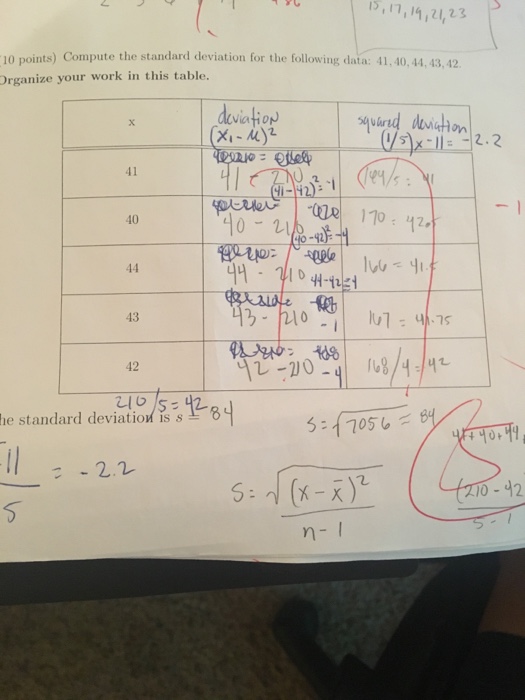 15, 17, 19, 21, 23
10 points) Compute the standard deviation for the following data: 41, 40, 44, 43, 42.
Organize your work in this table.
x
deviation
(x₁ - μ)²
squared deviation
(1/5)x - 11 = -2.2
41
41 - 210
(41-42)² = -1
164/5 = 41
40
40 - 210
(40-42)² = -4
170 = 42.5
-1
44
44 - 210
44-42 = 4
166 = 41.5
43
43 - 210
-1
167 = 41.75
42
42 - 210
-4
168/4 = 42
210/5 = 42
he standard deviation is s = 84
s = √7056 = 84
41 + 40 + 44
-11
5
= -2.2
S = √(x - x̄)²
n - 1
(210 - 42
5 - 1